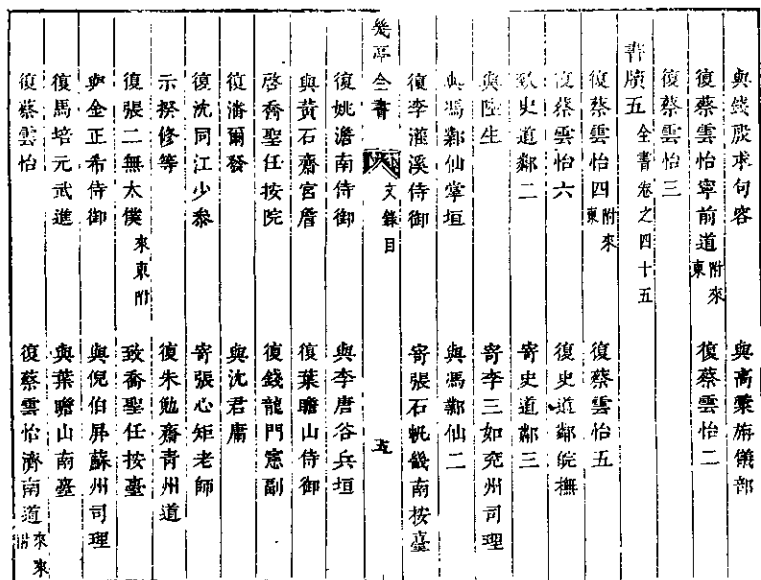 與錢殷求句容　與高彙旃儀部
復蔡雲怡寧前道附來柬　復蔡雲怡二
復蔡雲怡三
書牘五　全書卷之四十五
復蔡雲怡四附來柬　復蔡雲怡五
復蔡雲怡六　復史道鄰皖撫
致史道鄰二　寄史道鄰三
與陸生　寄李三如兗州司理
與馮鄴仙掌垣　與馮鄴仙二
復李灌溪侍御　寄張石帆畿南按臺
幾亭全書　文錄目　五
復姚澹南侍御　與李唐谷兵垣
與黃石齋宮詹　復葉瞻山侍御
啓喬聖任按院　復錢龍門憲副
復潘爾發　與沈君庸
復沈同江少參　寄張心矩老師
示揆修等　復朱勉齋青州道
復張二無太僕來柬附　致喬聖任按臺
與金正希侍御　與倪伯屏蘇州司理
復馬培元武進　與葉瞻山南臺
復蔡雲怡　復蔡雲怡濟南道來柬附